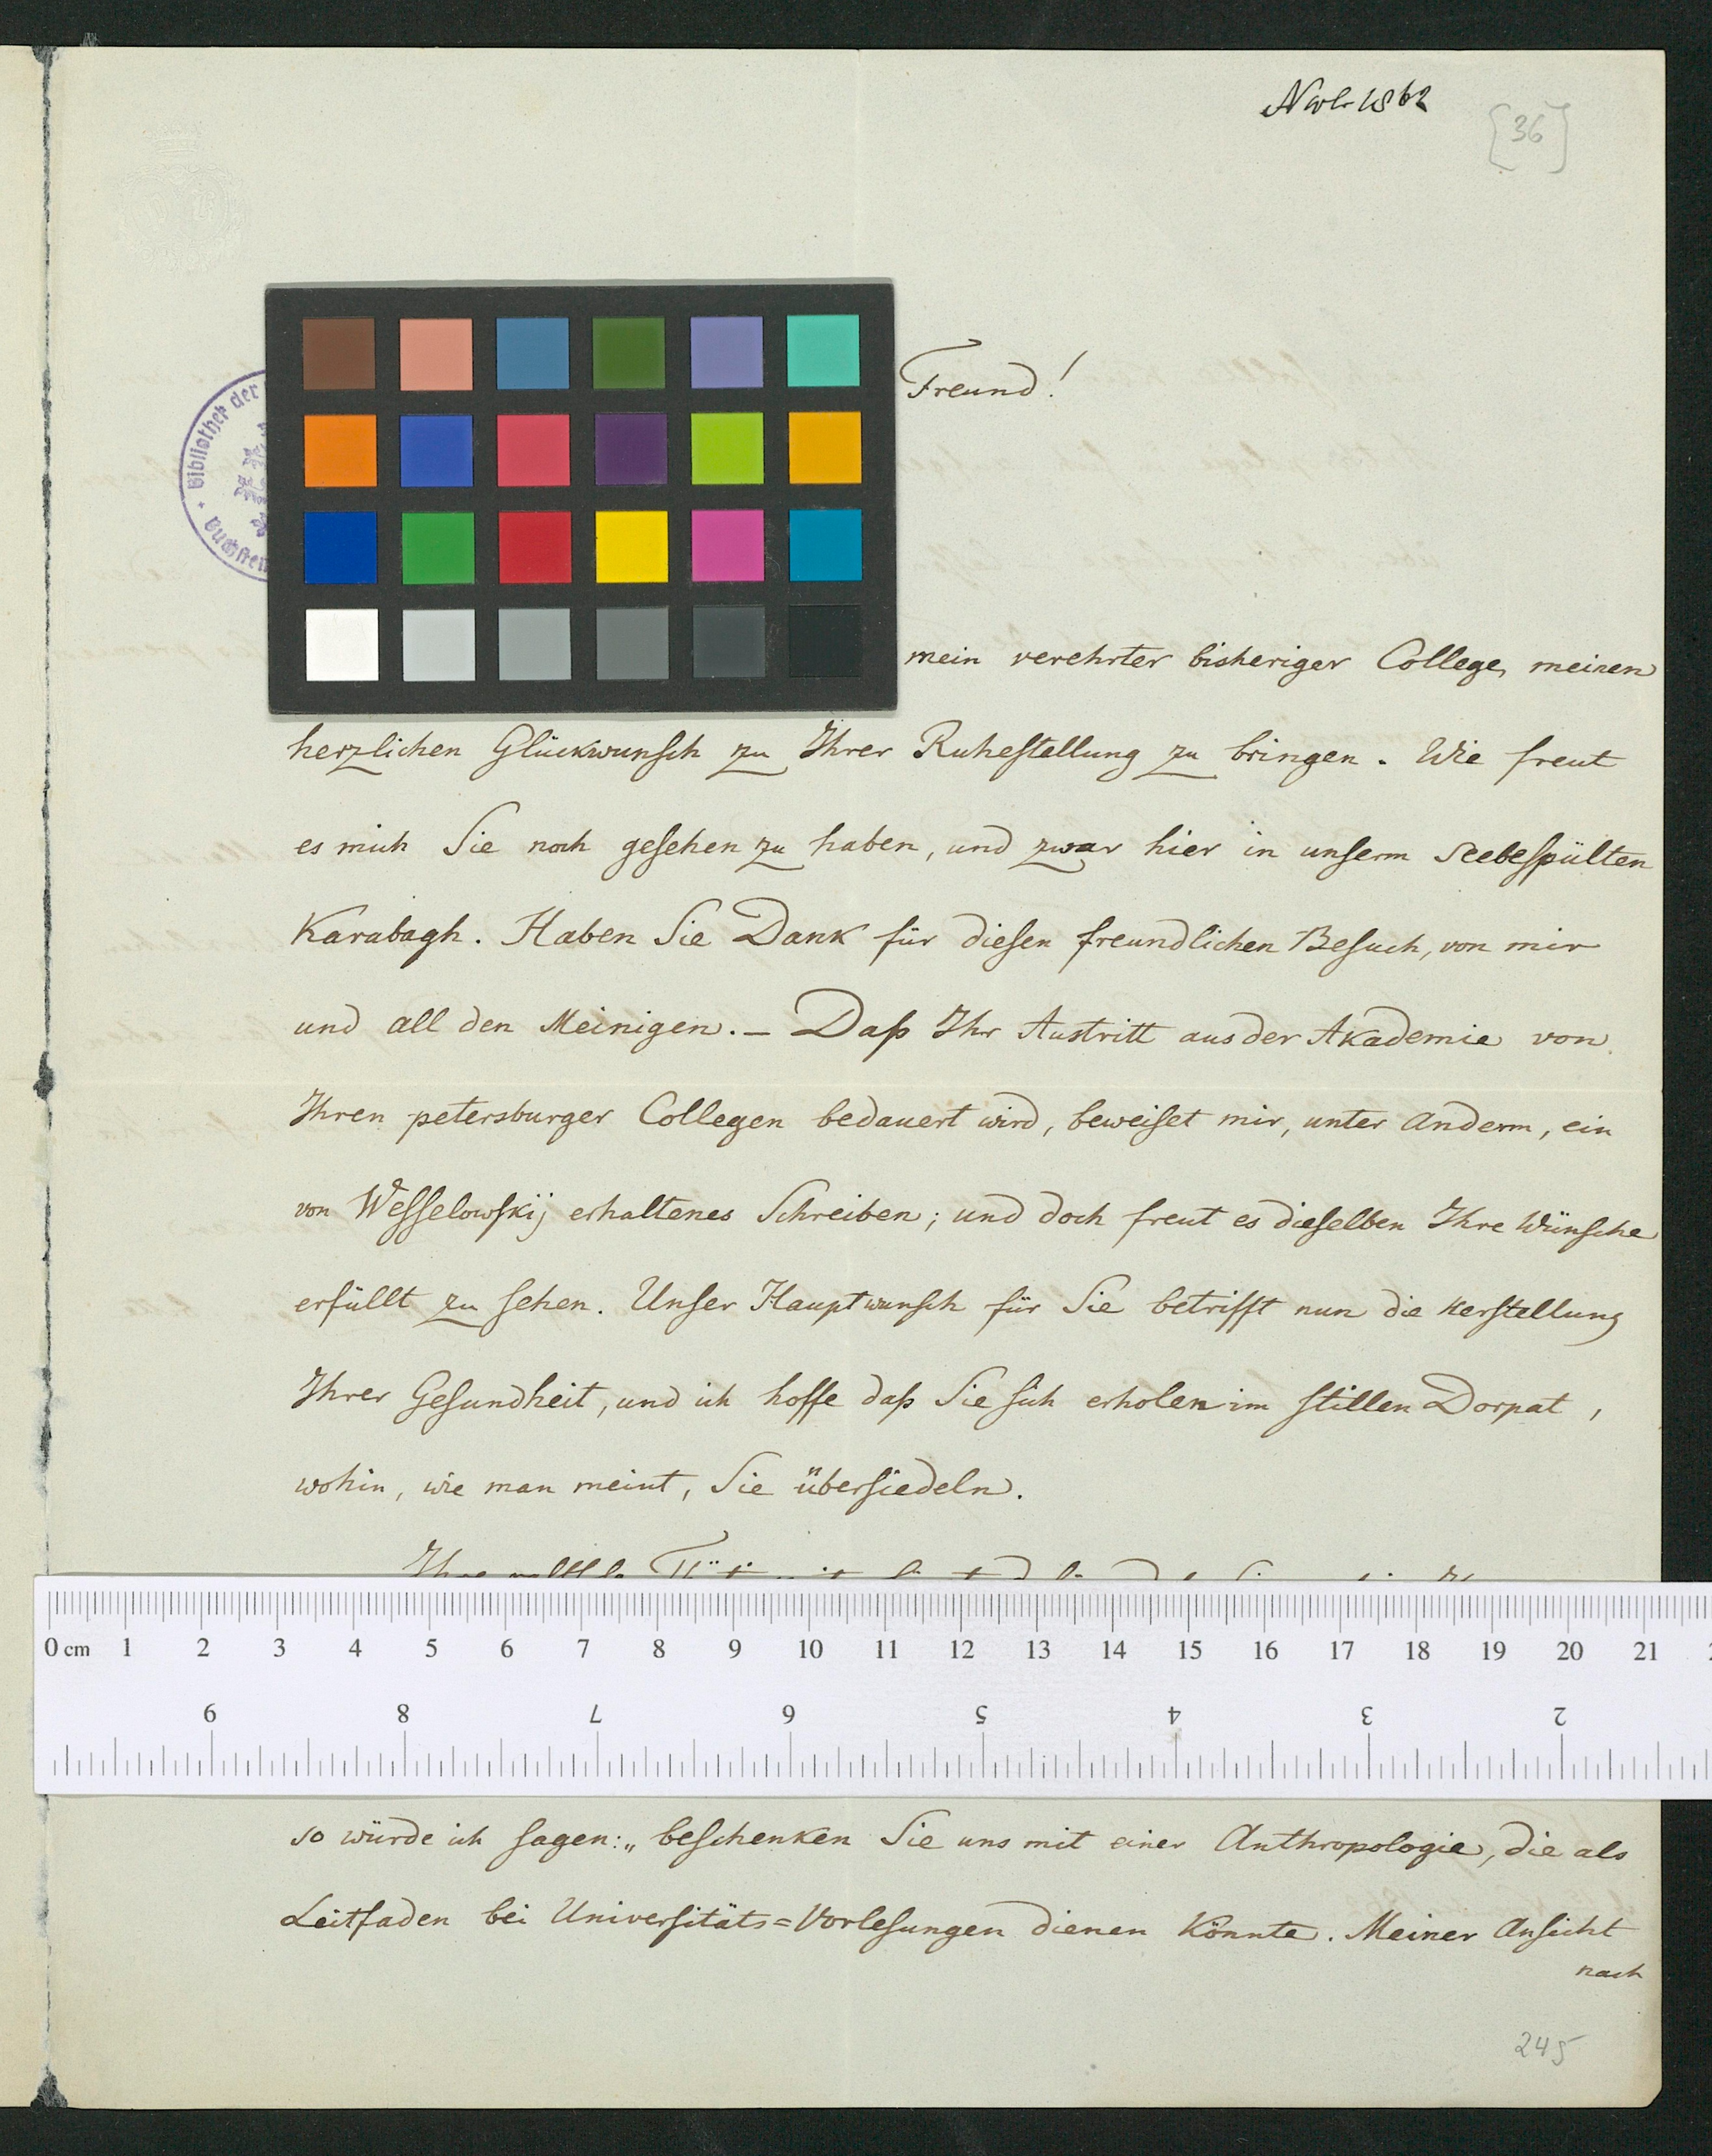 Novbr 1862
[36]
Freund!
Bibliothek der
mein verehrter bisheriger College, meinen
herzlichen Glückwunſch zu Ihrer Ruheſtellung zu bringen. Wie freut
es mich Sie noch geſehen zu haben, und zwar hier in unſerm Seebeſpülten
Karabagh. Haben Sie Dank für dieſen freundlichen Beſuch, von mir
und all den Meinigen. — Daſs Ihr Austritt aus der Akademie von
Ihren petersburger Collegen bedauert wird, beweiſet mir, unter Anderm, ein
von Weſſelowſkij erhaltenes Schreiben; und doch freut es dieſelben Ihre Wünſche
erfüllt zu ſehen. Unſer Hauptwunſch für Sie betrifft nun die Herſtellung
Ihrer Geſundheit, und ich hoffe daſs Sie ſich erholen im ſtillen Dorpat,
wohin, wie man meint, Sie überſiedeln.
0 cm 1 2 3 4 5 6 7 8 9 10 11 12 13 14 15 16 17 18 19 20 21
9 8 7 6 5 4 3 2
so würde ich ſagen: „beſchenken Sie uns mit einer Anthropologie, die als
Leitfaden bei Univerſitäts=Vorleſungen dienen könnte. Meiner Anſicht
nach
245